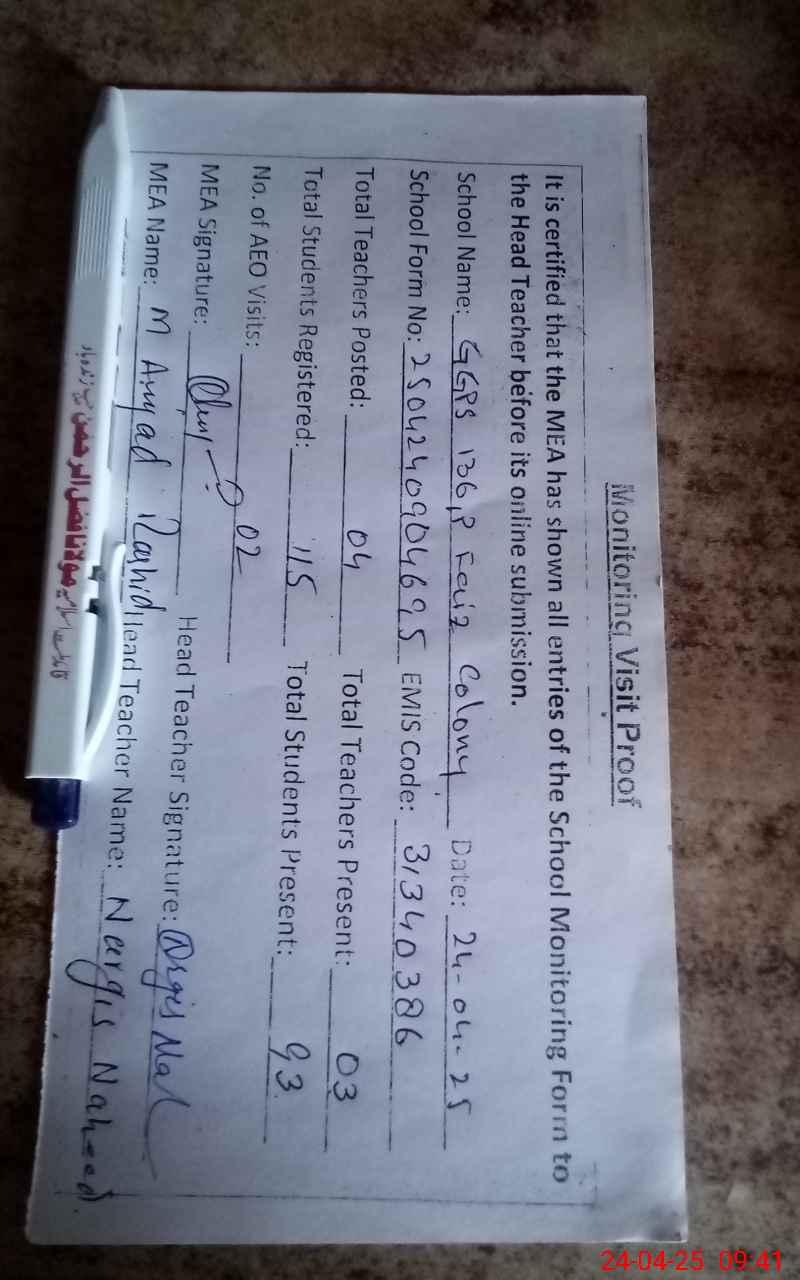 Monitoring Visit Proof
It is certified that the MEA has shown all entries of the School Monitoring Form to
the Head Teacher before its online submission.
School Name: GGPS 136,P Faiz Colony Date: 24-04-25
School Form No: 2504240904695 EMIS Code: 31340386
Total Teachers Posted: 04 Total Teachers Present: 03
Total Students Registered: 115 Total Students Present: 93
No. of AEO Visits: 02
MEA Signature: Head Teacher Signature: Nargis
MEA Name: M Amjad Rashid Head Teacher Name: Nargis Naheed
مولانا فضل الرحمن
زندہ باد
24-04-25 09:41